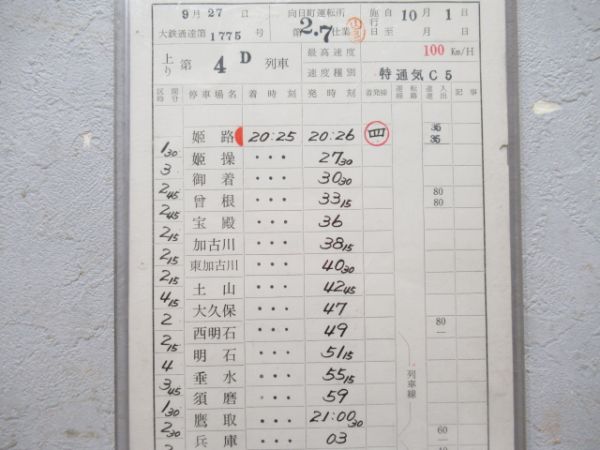 9月27日 向日町運転所 施行 自 10月1日
大鉄通達第1775号 第2.7仕業 至 月 日
上り 第 4D 列車 最高速度 100 Km/H
速度種別 特通気C5
区間時分 停車場名 着時刻 発時刻 着発線 運転線路 進入進出 記事
姫路 20:25 20:26 四 35 35
1 30
姫操 ・・・ 27 30
3
御着 ・・・ 30 30
2 45
曾根 ・・・ 33 15 80 80
2 45
宝殿 ・・・ 36
2 15
加古川 ・・・ 38 15
2 15
東加古川 ・・・ 40 30
2 15
土山 ・・・ 42 45
4 15
大久保 ・・・ 47
2
西明石 ・・・ 49 80 —
2 15
明石 ・・・ 51 15
4
垂水 ・・・ 55 15 列車線
3 45
須磨 ・・・ 59
1 30
鷹取 ・・・ 21:00 30
2 30
兵庫 ・・・ 03 60 —